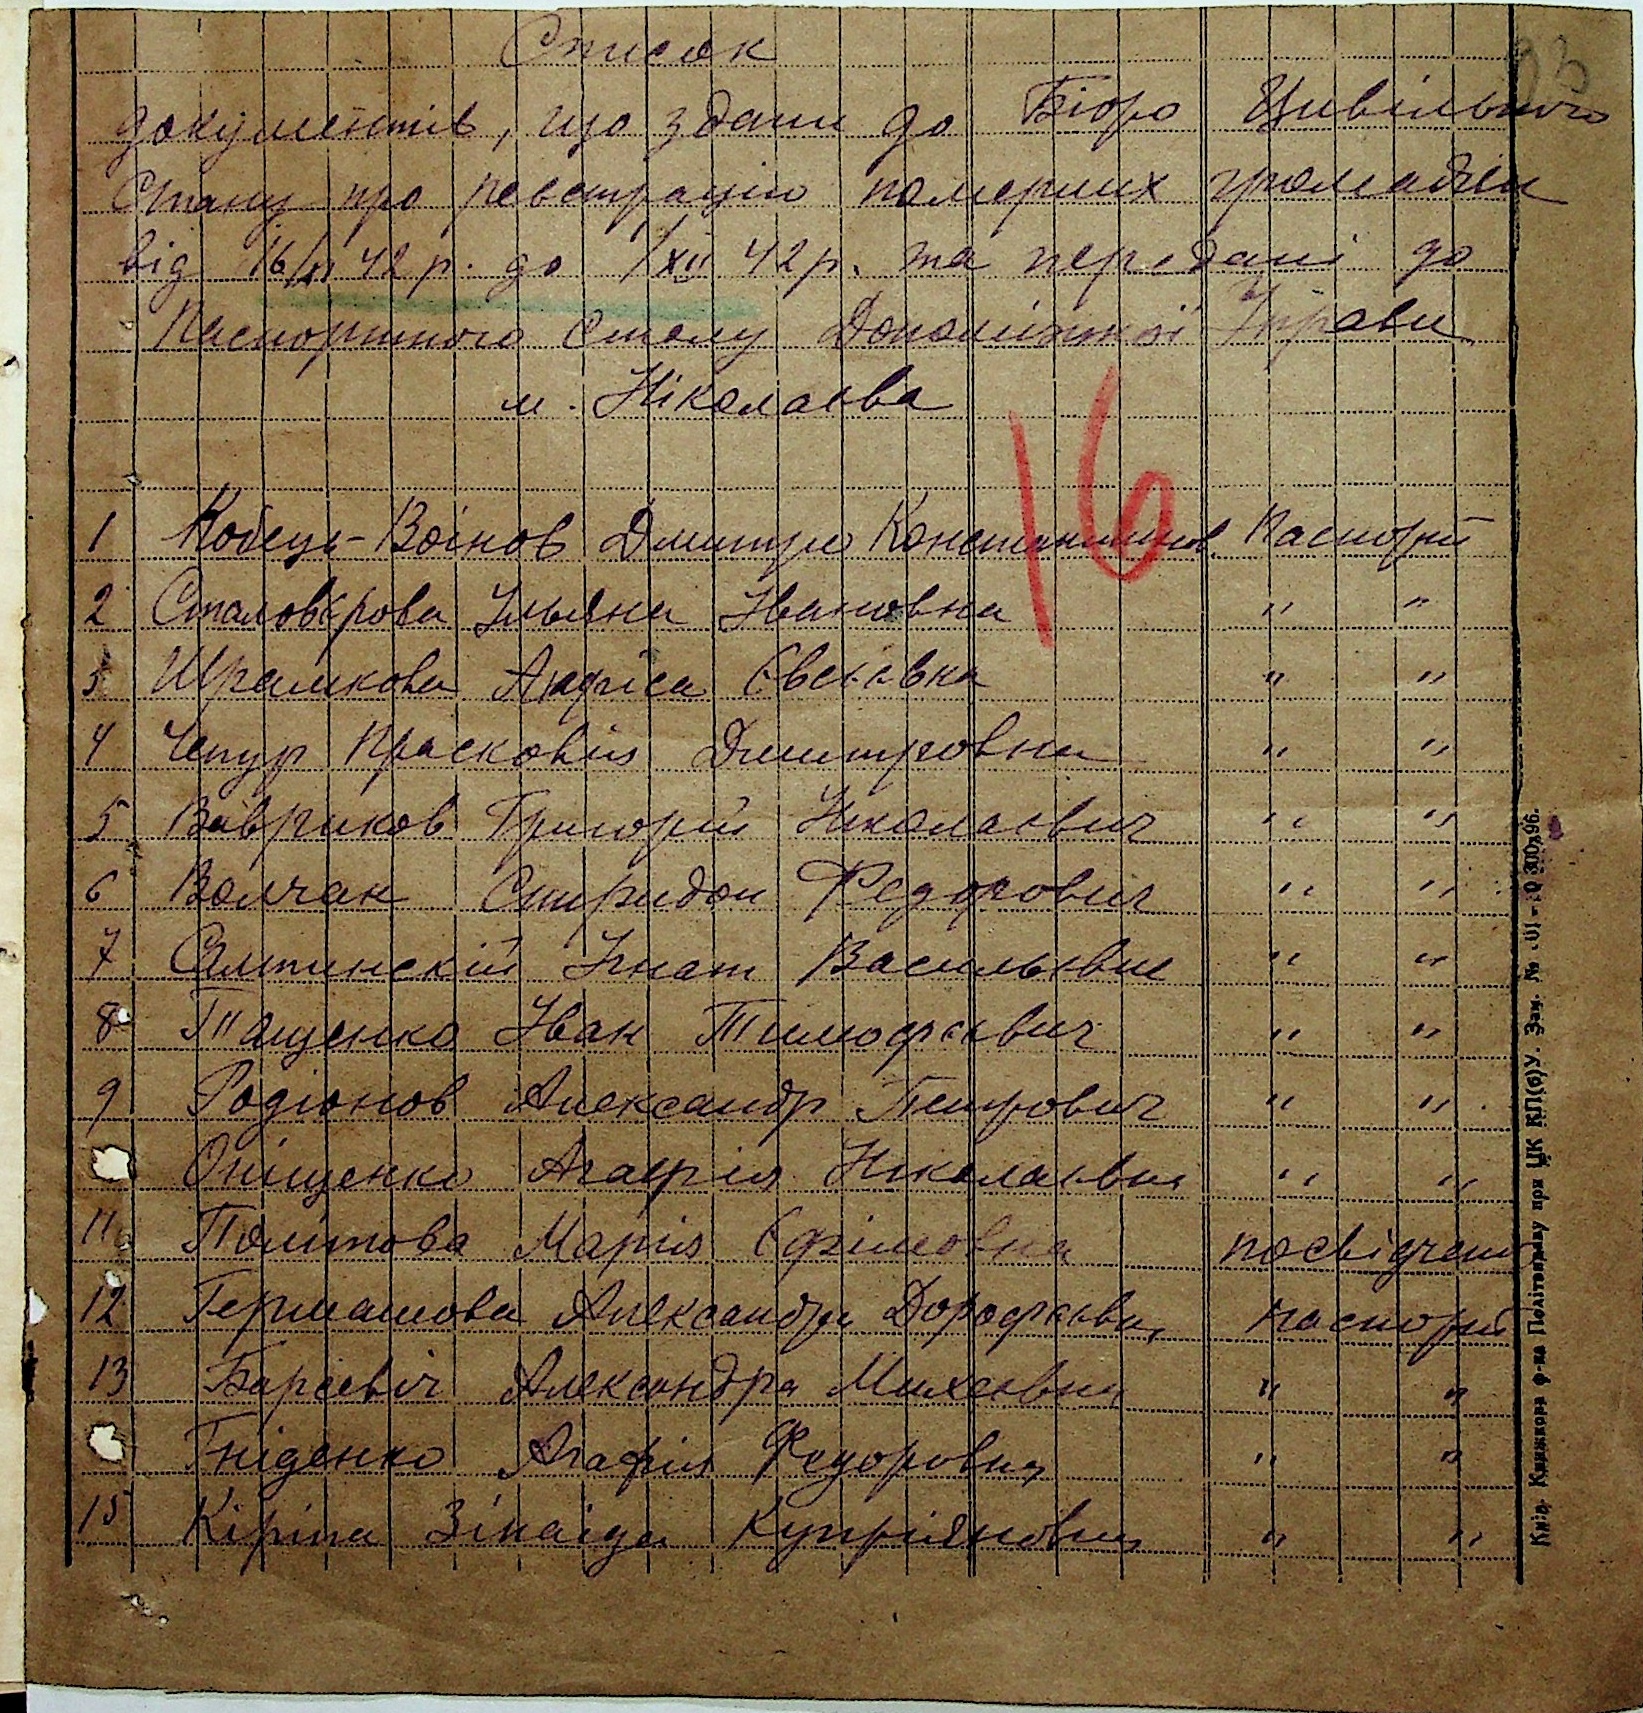 93
Список
документів, що здані до Бюро Цивільного
Стану про реєстрацію померших громадян
від 16/ІІ 42 р. до 1/ХІІ 42 р. та передані до
Паспортного Столу Допоміжної Управи
м. Ніколаєва
16
1 Кобець-Воінов Дмитро Константинов. Паспорт
2 Сталовєрова Ульяна Івановна " "
3 Шрамкова Анфіса Євсеєвна " "
4 Чепур Прасковія Дмитровна " "
5 Вавриков Григорій Николаєвич " "
6 Волчак Спиридон Федорович " "
7 Ігнат Васильєвич " "
8 Пащенко Іван Тимофєєвич " "
9 Родіонов Александр Петрович " "
Оніщенко Агафія Ніколаєвна " "
11 Політова Марія Єфімовна посвідчен
12 Гермашова Александра Дорофєєвна паспорт
13 Барсевіч Александра Михеєвна " "
Гніденко Агафія Федоровна " "
15 Кіріпа Зінаіда Купріяновна " "
Київ. Книжкова ф-ка Політвидаву при ЦК КП(б)У. Зам. №